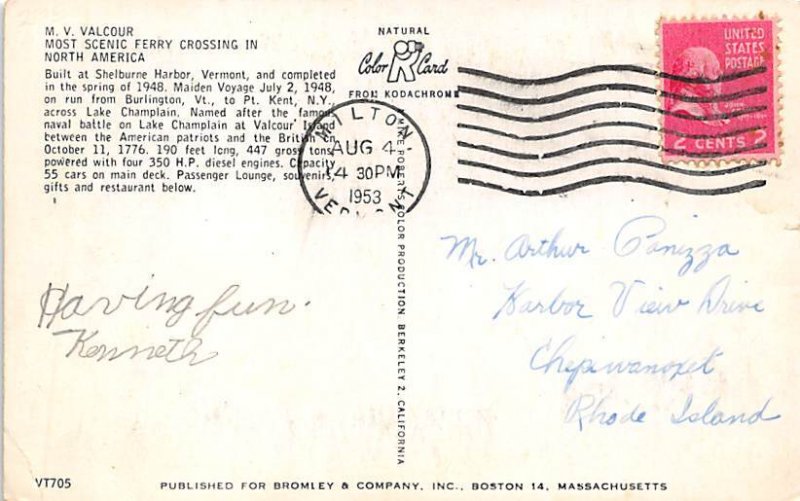 M. V. VALCOUR
MOST SCENIC FERRY CROSSING IN
NORTH AMERICA
Built at Shelburne Harbor, Vermont, and completed
in the spring of 1948. Maiden Voyage July 2, 1948,
on run from Burlington, Vt., to Pt. Kent, N.Y.,
across Lake Champlain. Named after the famous
naval battle on Lake Champlain at Valcour Island
between the American patriots and the British on
October 11, 1776. 190 feet long, 447 gross tons,
powered with four 350 H.P. diesel engines. Capacity
55 cars on main deck. Passenger Lounge, souvenirs,
gifts and restaurant below.
NATURAL
Color Card
FROM KODACHROME
MILTON
AUG 4
4 30PM
1953
VERMONT
UNITED
STATES
POSTAGE
JOHN
2 CENTS 2
MIKE ROBERTS COLOR PRODUCTION, BERKELEY 2, CALIFORNIA
Having fun.
Kenneth
Mr. Arthur Panizza
Harbor View Drive
Chepiwanoxet
Rhode Island
VT705
PUBLISHED FOR BROMLEY & COMPANY, INC., BOSTON 14, MASSACHUSETTS